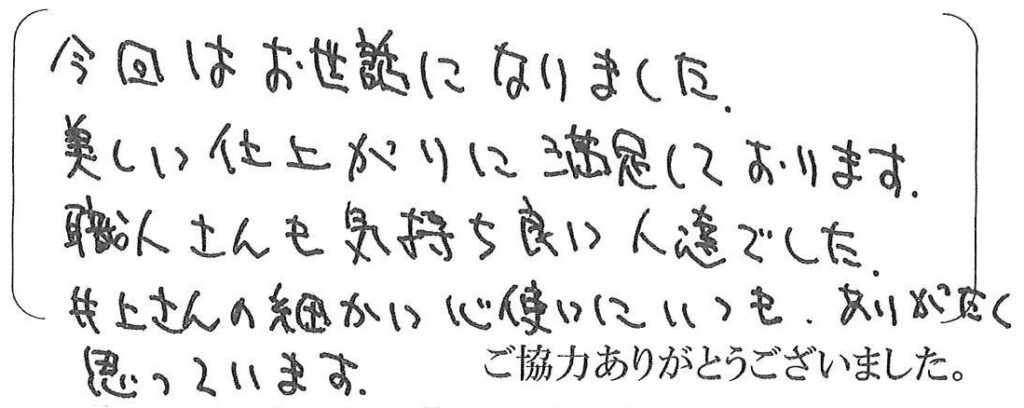 今回はお世話になりました.
美しい仕上がりに満足しております.
職人さんも気持ち良い人達でした.
井上さんの細かい心使いにいつも.ありがたく
思っています.
ご協力ありがとうございました。